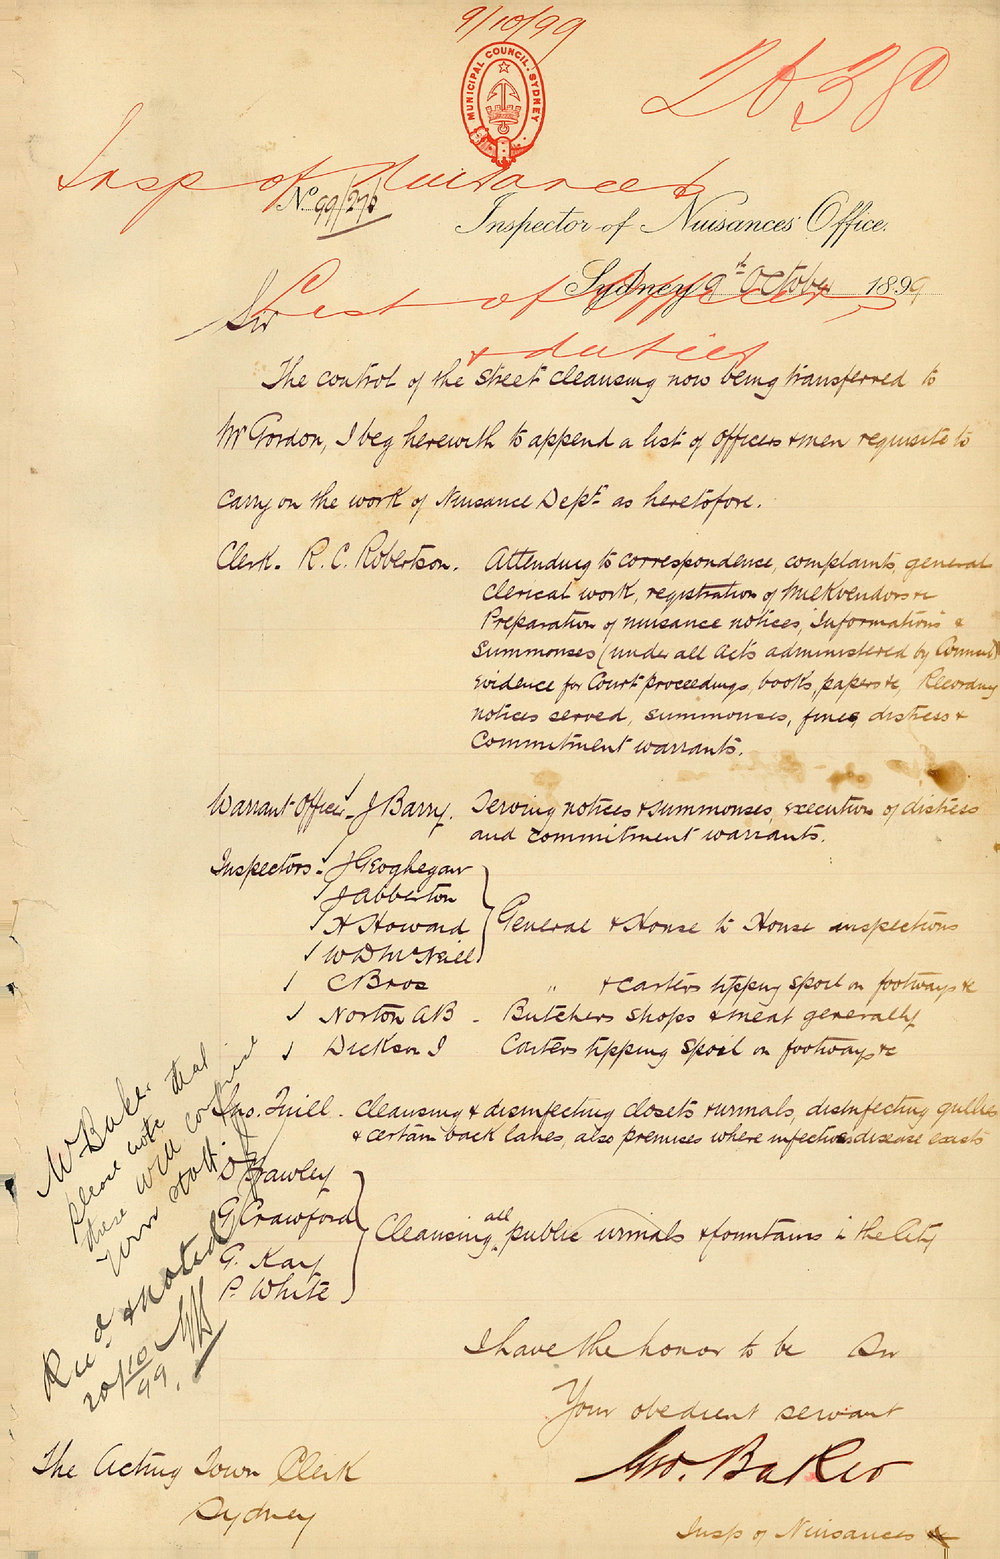 9/10/99
MUNICIPAL COUNCIL. SYDNEY
2638
Insp of Nuisances
No 99/278
Inspector of Nuisances' Office.
Sydney 9th October 1899
List of Officers
& duties
Sir
The control of the street cleansing now being transferred to
Mr Gordon, I beg herewith to append a list of officers & men requisite to
carry on the work of Nuisance Dept. as heretofore.
Clerk. R. C. Robertson. Attending to correspondence, complaints, general
clerical work, registration of milkvendors &c
Preparation of nuisance notices, Informations &
Summonses (under all Acts administered by Council)
evidence for Court proceedings, books, papers &c, Recording
notices served, summonses, fines, distress &
Commitment warrants.
Warrant Officer - J Barry. Serving notices & summonses, execution of distress
and commitment warrants.
Inspectors - J Geoghegan
J Abberton
H Howard General & House to House inspections
W D McNeill
C Bros " & carters tipping spoil on footways &c
Norton AB - Butchers shops & meat generally
Dickson I Carters tipping spoil on footways &c
Jno. Quill - cleansing & disinfecting closets & urinals, disinfecting gullies
& certain back lanes, also premises where infectious disease exists
D Frawley
G Crawford
Cleansing all public urinals & fountains in the City
G. Kay
P. White
Mr Baker
please note that
these will comprise
your staff.
Recd & noted
20/10/99.
I have the honor to be Sir
Your obedient servant
Geo. Baker
Insp of Nuisances &c
The Acting Town Clerk
Sydney